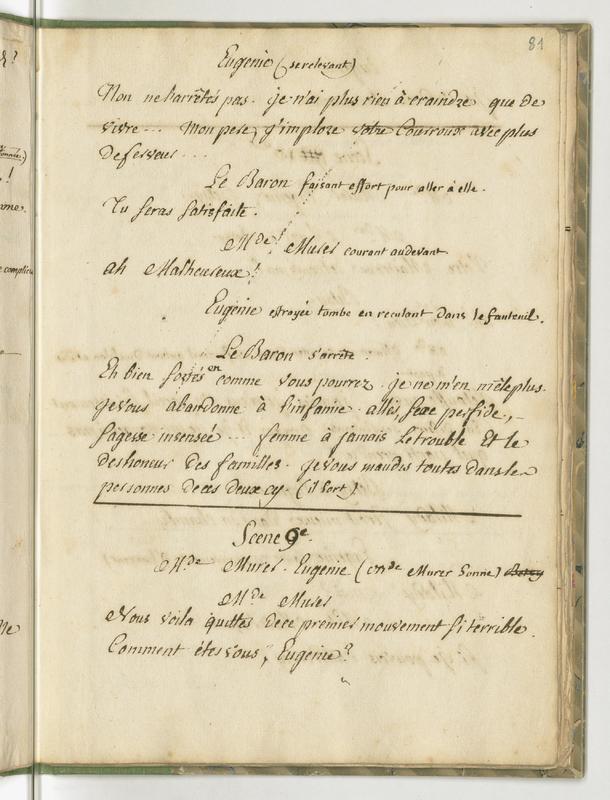 81
Eugenie (se relevant)
Non ne l'arrêtés pas. je n'ai plus rien à craindre que de
vivre... Mon pere, j'implore votre Courroux avec plus
de ferveur....
Le Baron faisant effort pour aller à elle.
Tu seras satisfaite.
Mde Murer courant audevant.
ah Malheureux!
Eugenie effrayée tombe en reculant dans le fauteuil.
Le Baron s'arrête:
Eh bien soyés en comme vous pourrez. je ne m'en mêle plus.
je vous abandonne à l'infamie. allés, sexe perfide,
sagesse insensée... femme à jamais le trouble Et le
deshoneur des familles. je vous maudis toutes dans les
personnes de ces deux cy. (il sort)
Scene 9e.
Mde Murer. Eugenie (Mde Murer Sonne) Betsy
Mde Murer
Nous voila quittes de ce premier mouvement si terrible.
Comment êtes vous, Eugenie?